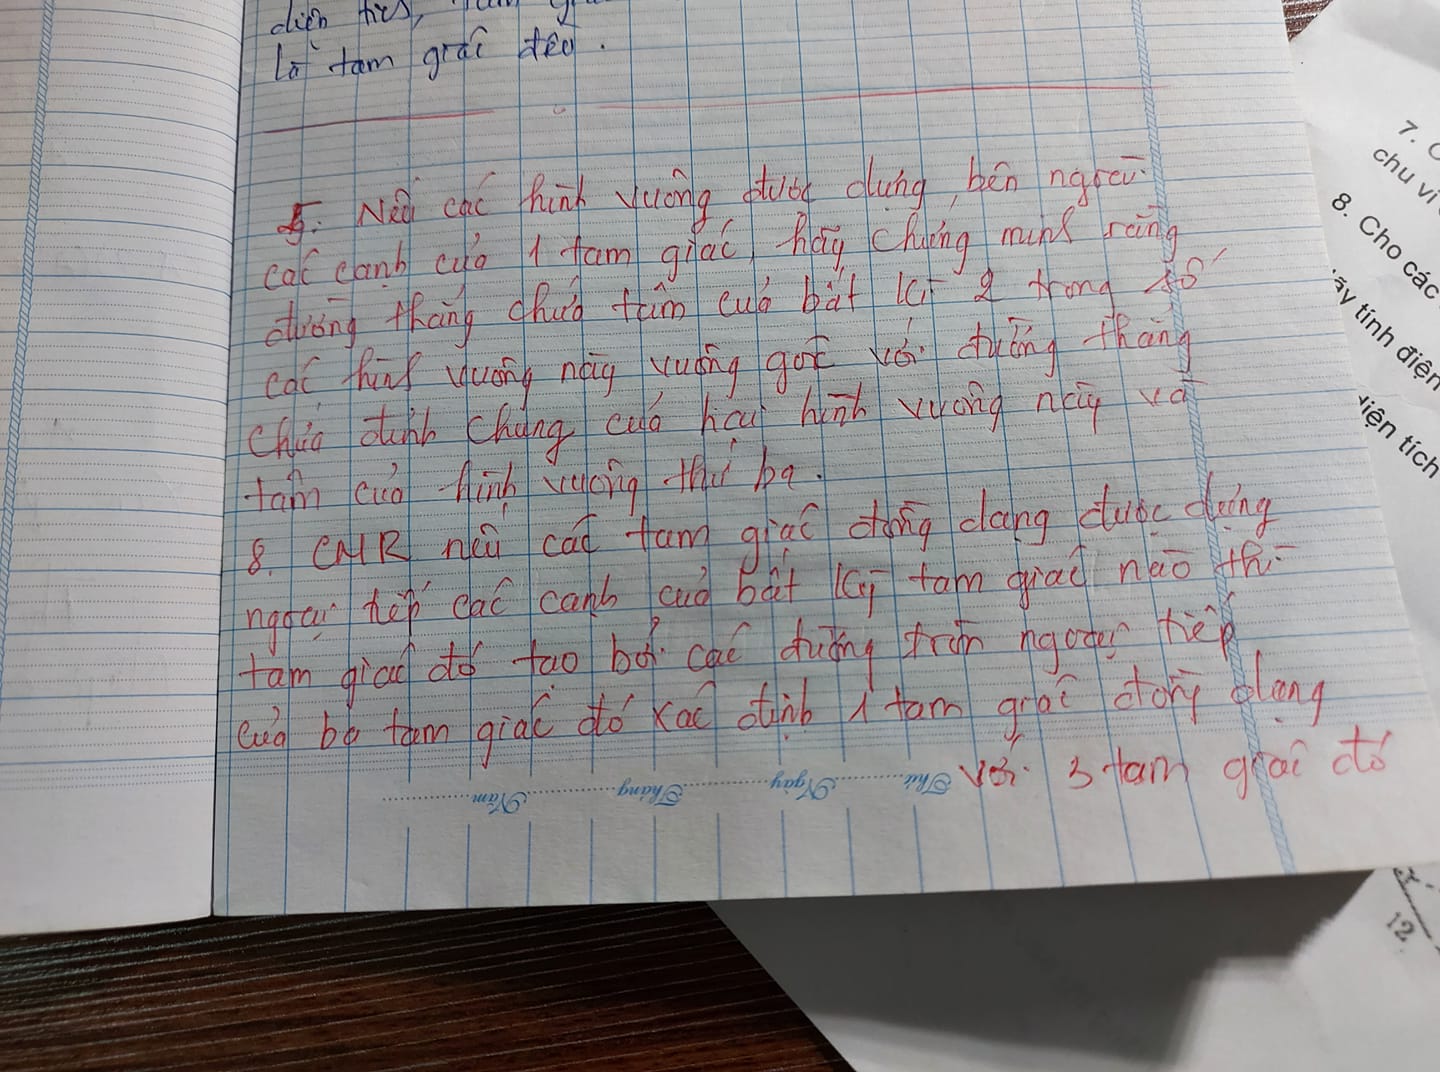 diện tích,
là tam giác đều.
5. Nếu các hình vuông được dựng bên ngoài
các cạnh của 1 tam giác, hãy chứng minh rằng
đường thẳng chứa tâm của bất kì 2 trong số
các hình vuông này vuông góc với đường thẳng
chứa đỉnh chung của hai hình vuông này và
tâm của hình vuông thứ ba.
8. CMR nếu các tam giác đồng dạng được dựng
ngoại tiếp các cạnh của bất kỳ tam giác nào thì
tam giác đó tạo bởi các đường tròn ngoại tiếp
của ba tam giác đó xác định 1 tam giác đồng dạng
với 3 tam giác đó
Thứ Ngày Tháng Năm
7.
chu vi
8. Cho các
ãy tính điện
diện tích
12